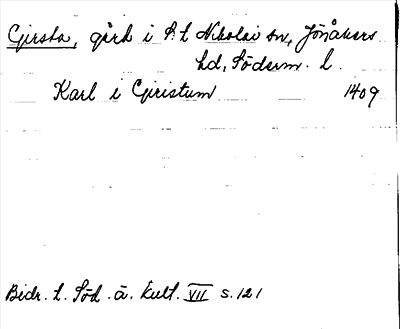 Gjersta, gård i S:t Nikolai sn, Jönåkers
hd, Söderm. l.
Karl i Gjiristum 1409
Bidr. t. Söd. ä. Kult. VII s. 121